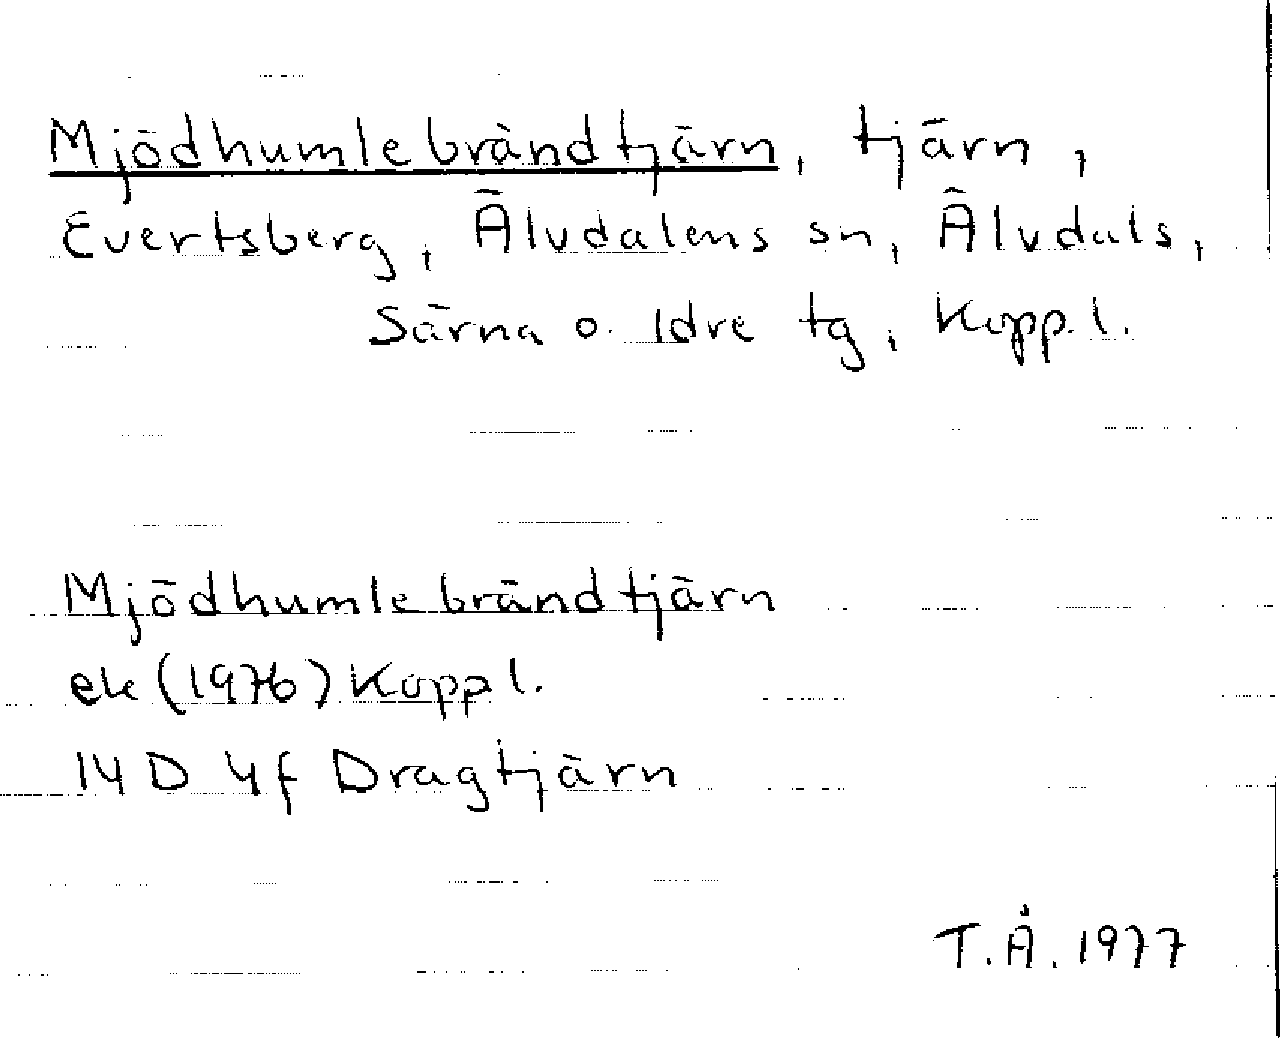 Mjödhumlebrändtjärn, tjärn,
Evertsberg, Älvdalens sn, Älvdals,
Särna o. Idre tg, Kopp. l.
Mjödhumlebrändtjärn
ek (1976) Kopp l.
14 D 4f Dragtjärn
T.Å. 1977